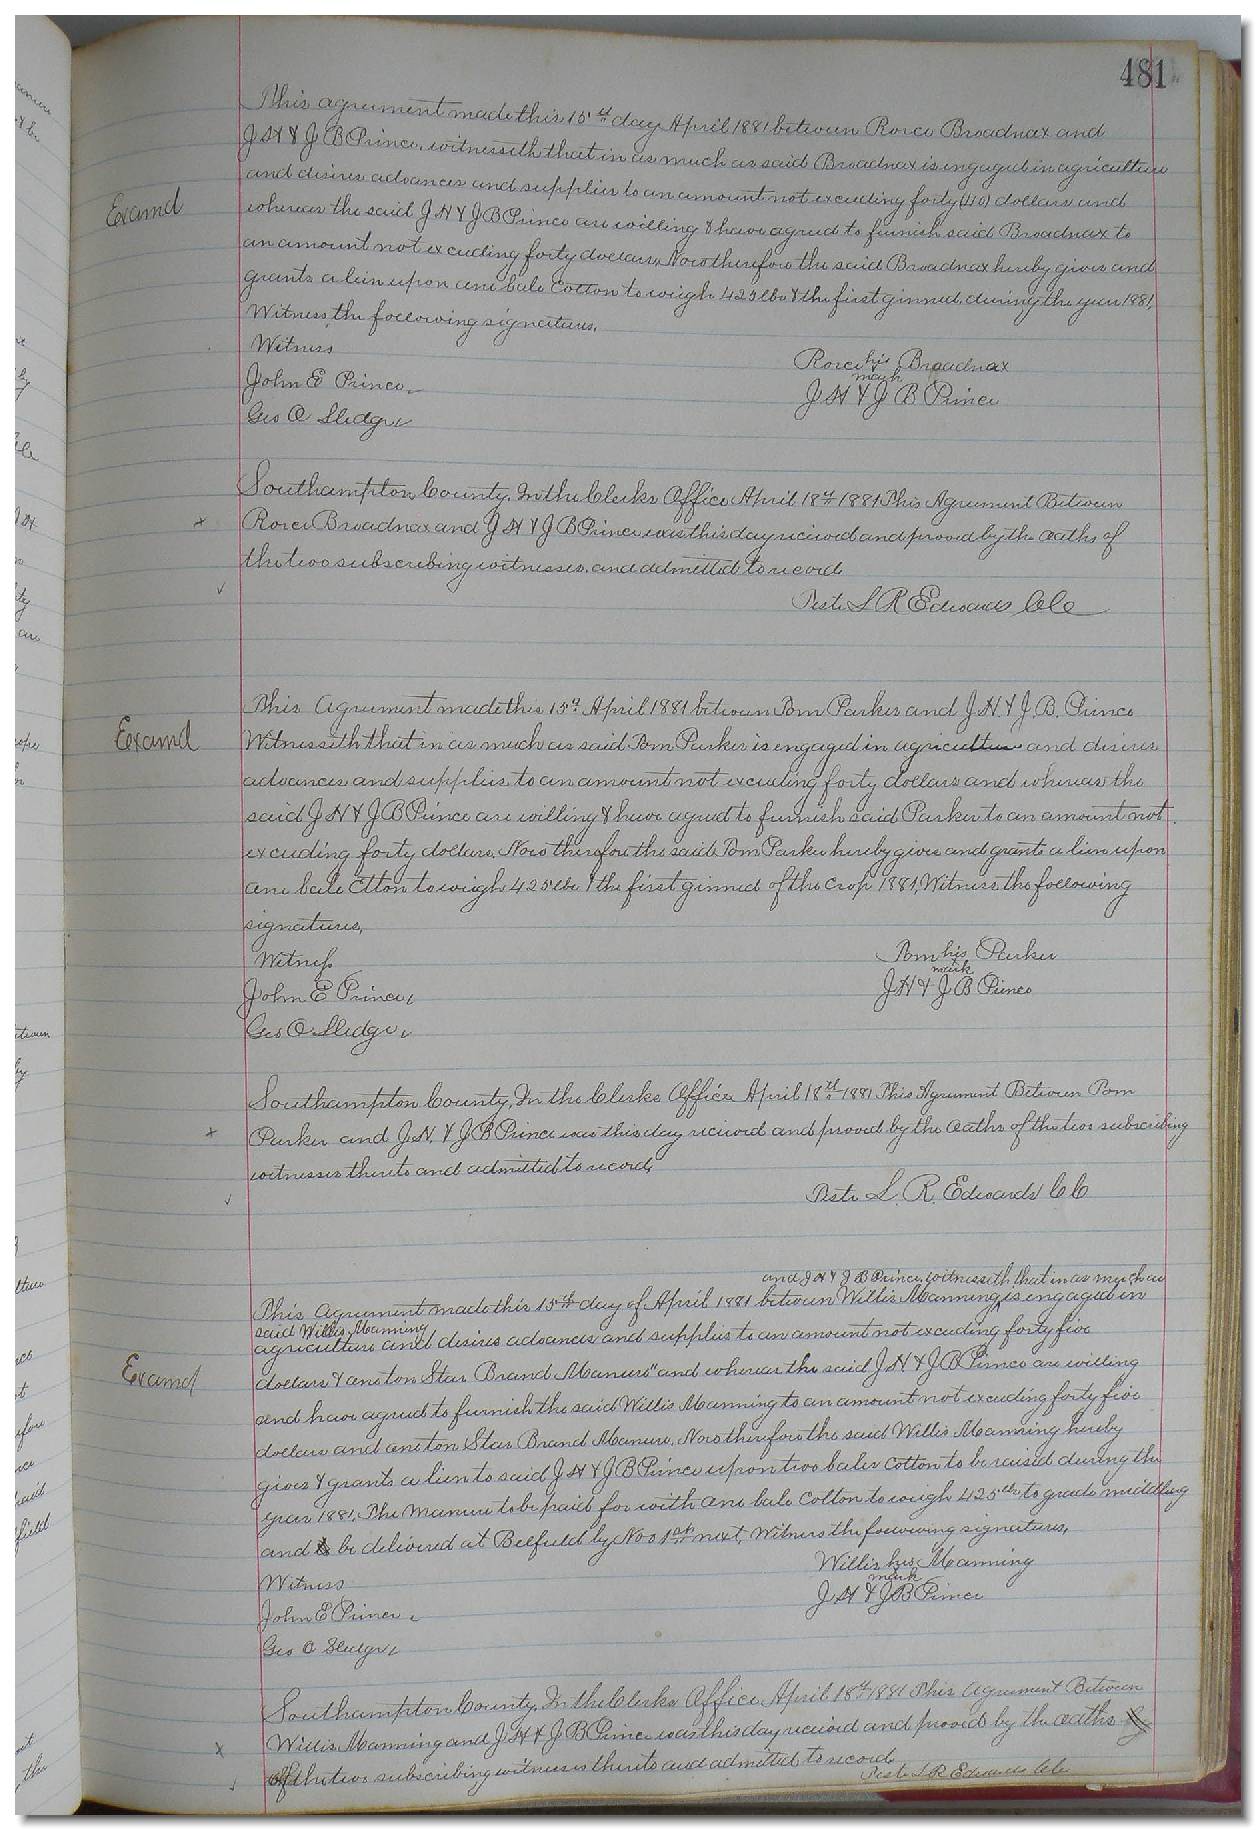 481
This agreement made this 15th day April 1881 between Rorce Broadnax and
J H & J B Prince, witnesseth that in as much as said Broadnax is engaged in agriculture
and desires advances and supplies to an amount not exceeding forty (40) dollars and
Examd
whereas the said J H & J B Prince are willing & have agreed to furnish said Broadnax to
an amount not exceeding forty dollars, Now therefore the said Broadnax hereby gives and
grants a lien upon one bale Cotton to weigh 425 lbs & the first ginned, during the year 1881,
Witness the following signatures,
Witness
Rorce his Broadnax
mark
John E Prince,
J H & J B Prince
Geo O Sledge,
Southampton County, In the Clerks Office April 18th 1881 This Agreement Between
x Rorce Broadnax and J H & J B Prince was this day received and proved by the oaths of
the two subscribing witnesses, and admitted to record
Teste L R Edwards Clc
This Agreement made this 15th April 1881 between Tom Parker and J. H. & J. B. Prince
Examd
Witnesseth that in as much as said Tom Parker is engaged in agriculture and desires
advances and supplies to an amount not exceeding forty dollars and whereas the
said J H & J B Prince are willing & have agreed to furnish said Parker to an amount not
exceeding forty dollars, Now therefore the said Tom Parker hereby gives and grants a lien upon
one bale Ctton to weigh 425 lbs & the first ginned of the Crop 1881, Witness the following
signatures,
Witness
Tom his Parker
mark
John E Prince,
J H & J B Prince
Geo O Sledge,
Southampton County, In the Clerks Office April 18th 1881 This Agreement Between Tom
x Parker and J. H. & J B Prince was this day received and proved by the oaths of the two subscribing
witnesses thereto and admitted to record,
Teste L. R. Edwards CC
and J H & J B Prince, witnesseth that in as much as
This Agreement made this 15th day of April 1881 between Willis Manning, is engaged in
said Willis Manning
agriculture and desires advances and supplies to an amount not exceeding forty five
Examd
dollars & one ton Star Brand Manure" and whereas the said J H & J B Prince are willing
and have agreed to furnish the said Willis Manning to an amount not exceeding forty five
dollars and one ton Star Brand Manure, Now therefore the said Willis Manning hereby
gives & grants a lien to said J H & J B Prince upon two bales Cotton to be raised during the
year 1881, The Manure to be paid for with one bale Cotton to weigh 425 lbs to grade middling
and be delivered at Belfield by Nov 1st next, Witness the following signatures,
Witness
Willis his Manning
mark
John E Prince,
J H & J B Prince
Geo O Sledge,
Southampton County, In the Clerks Office April 18th 1881 This Agreement Between
x Willis Manning and J H & J B Prince was this day received and proved by the oaths
of the two subscribing witnesses thereto and admitted to record
Teste L R Edwards Clc